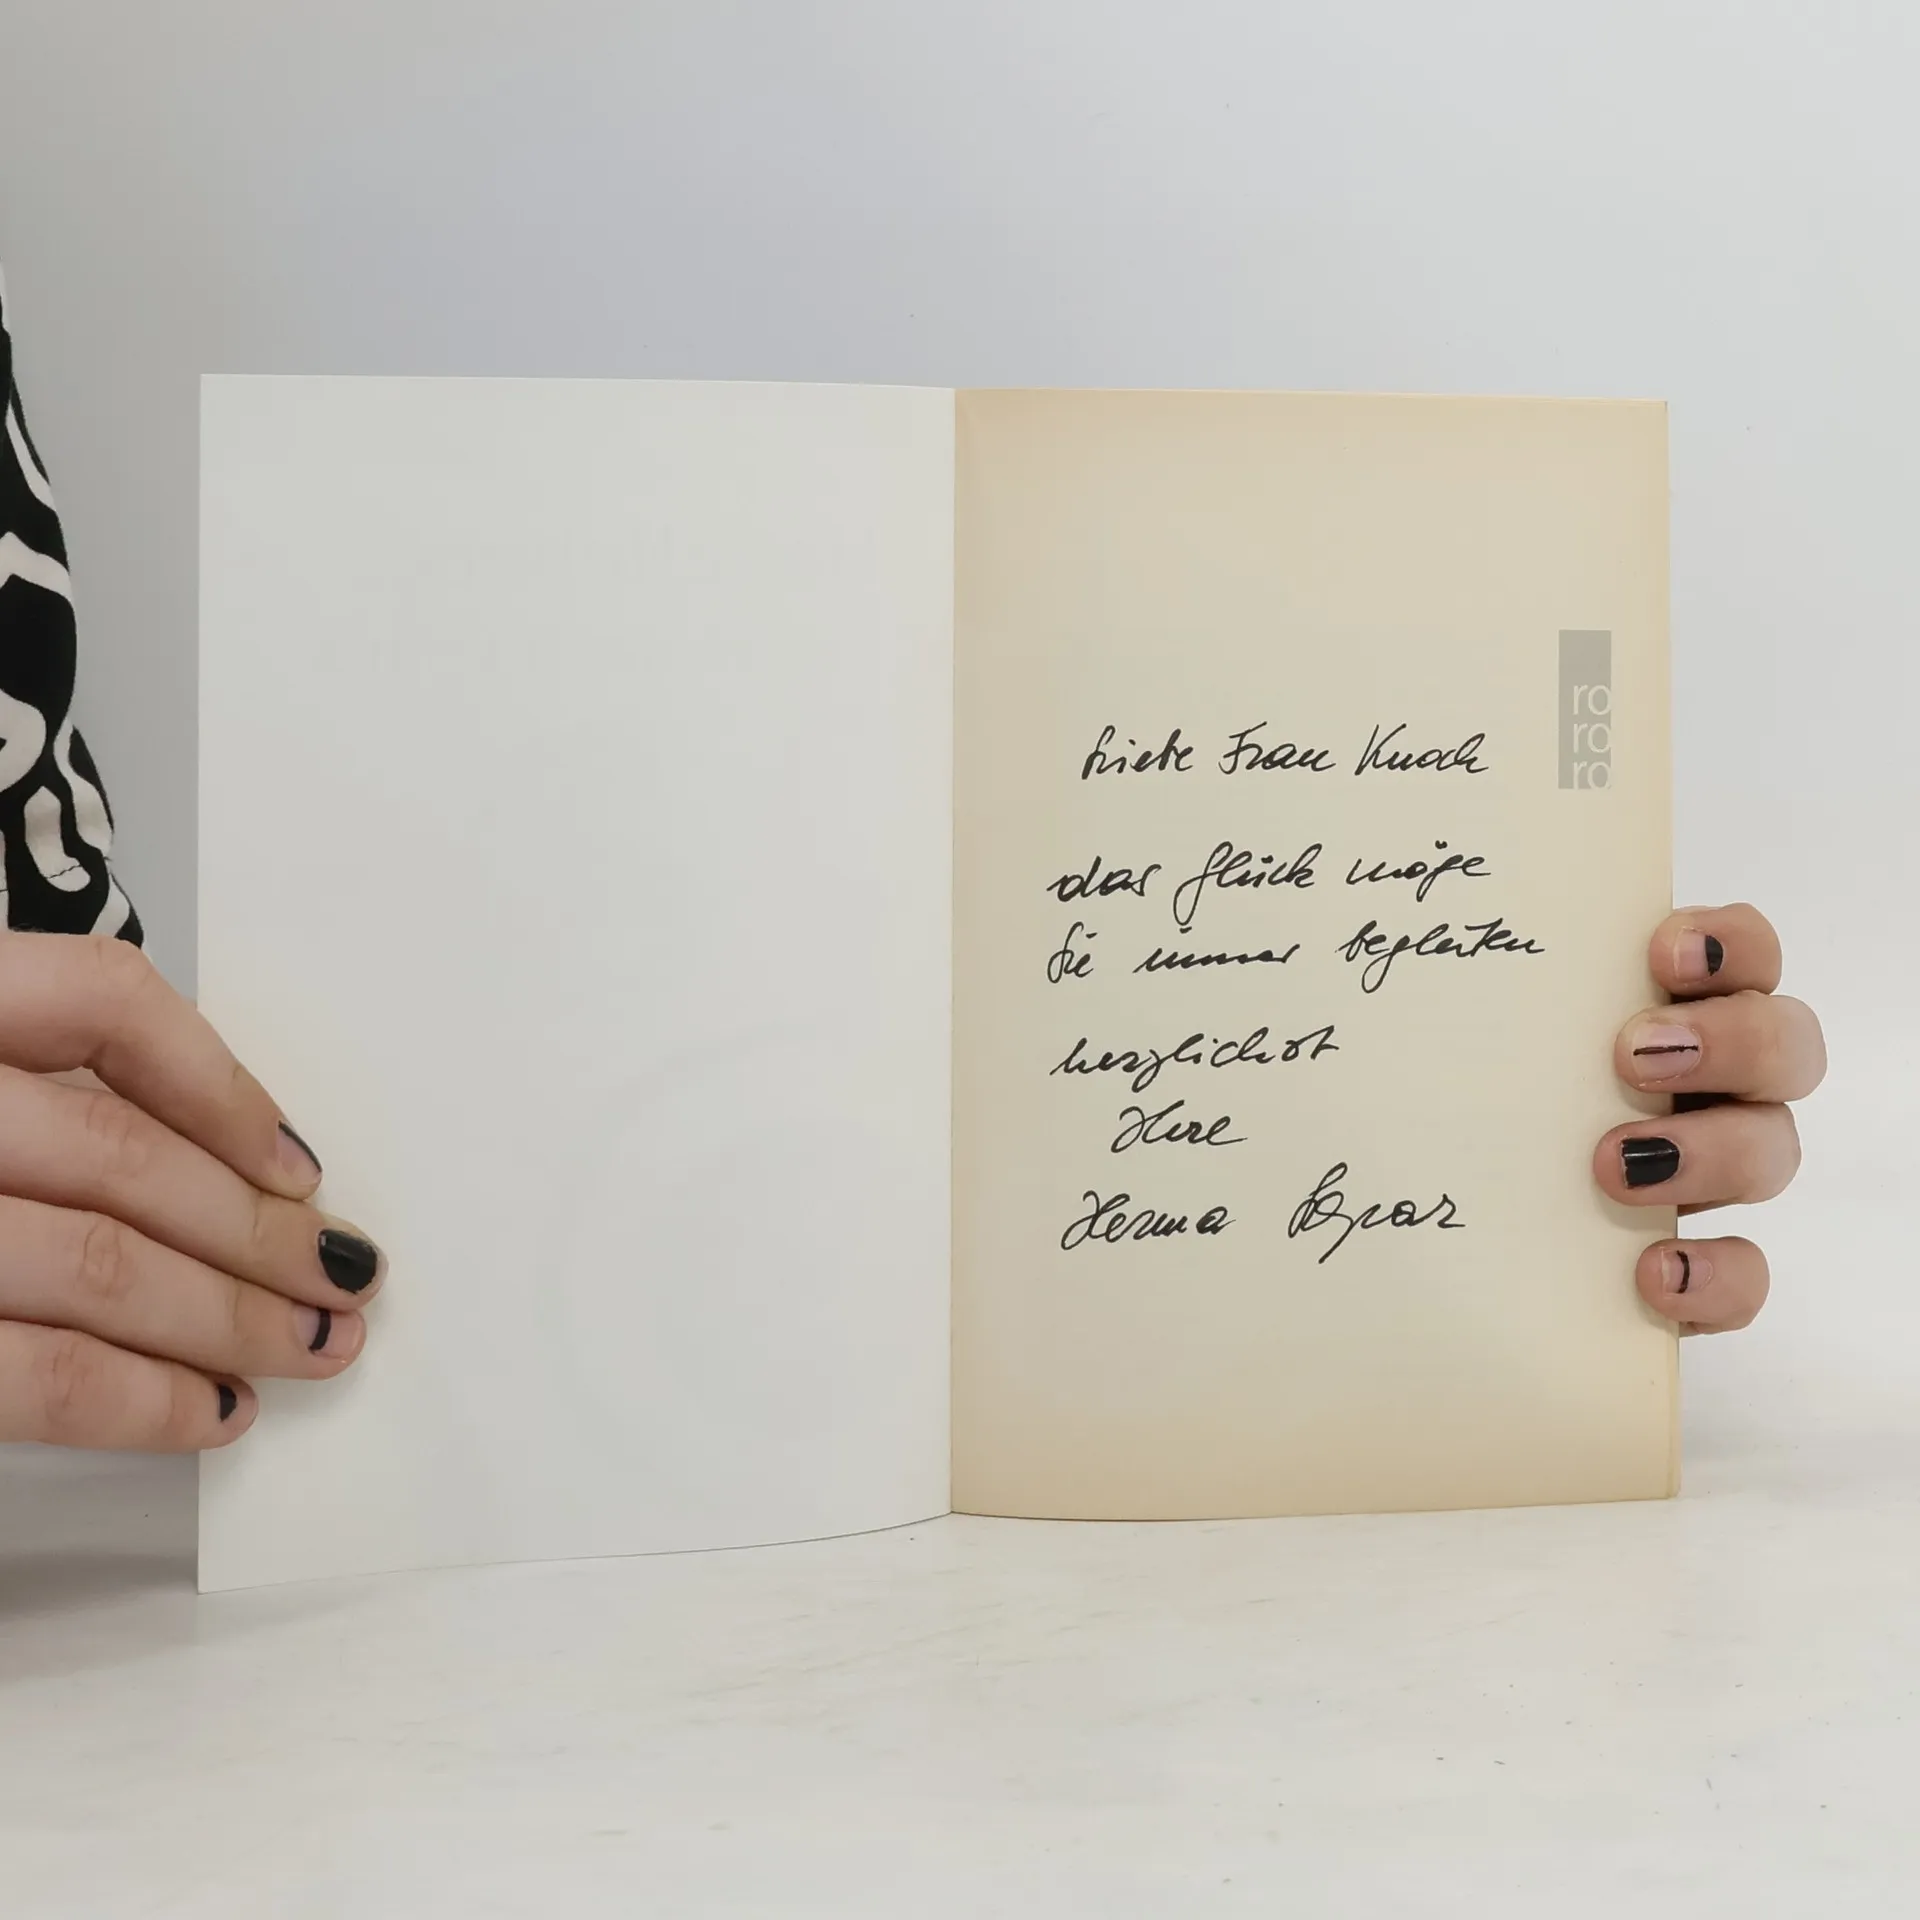 ro
ro
ro
Liebe Frau Knoch
das Glück möge
Sie immer begleiten
herzlichst
Ihre
Herma